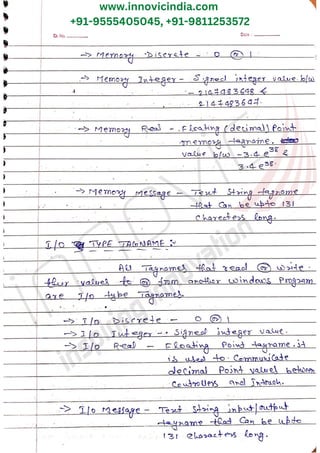 www.innovicindia.com
+91-9555405045, +91-9811253572
Ex. No. Date:
→ Memory Discrete - 0 or 1
→ Memory Integer - Signed integer value b/w
- 2147483648 &
2147483647.
→ Memory Real - Floating (decimal) Point
memory tagname.
value b/w -3.4 e³⁸ &
3.4 e³⁸.
→ Memory Message - Text String tagname
that Can be upto 131
Charecters long.
I/O TYPE TAGNAME :-
All Tagnames that read or write
their values to or from another windows Program
are I/O type Tagnames.
→ I/O Discrete - 0 or 1
→ I/O Integer - Signed integer value.
→ I/O Real - Floating Point tagname. it
is used to Communicate
decimal Point values between
Controllers and Intouch.
→ I/O Message - Text String input/output
tagname that Can be upto
131 characters long.